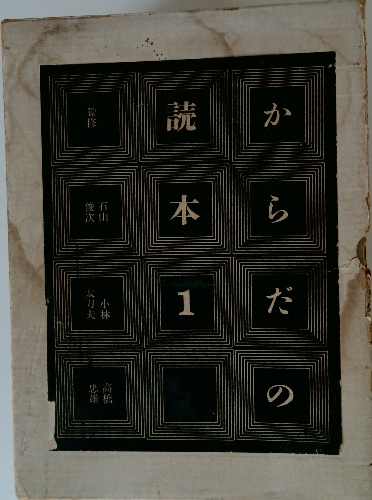 からだの
読本1
監修
石山
俊次
小林
太刀夫
高橋
忠雄